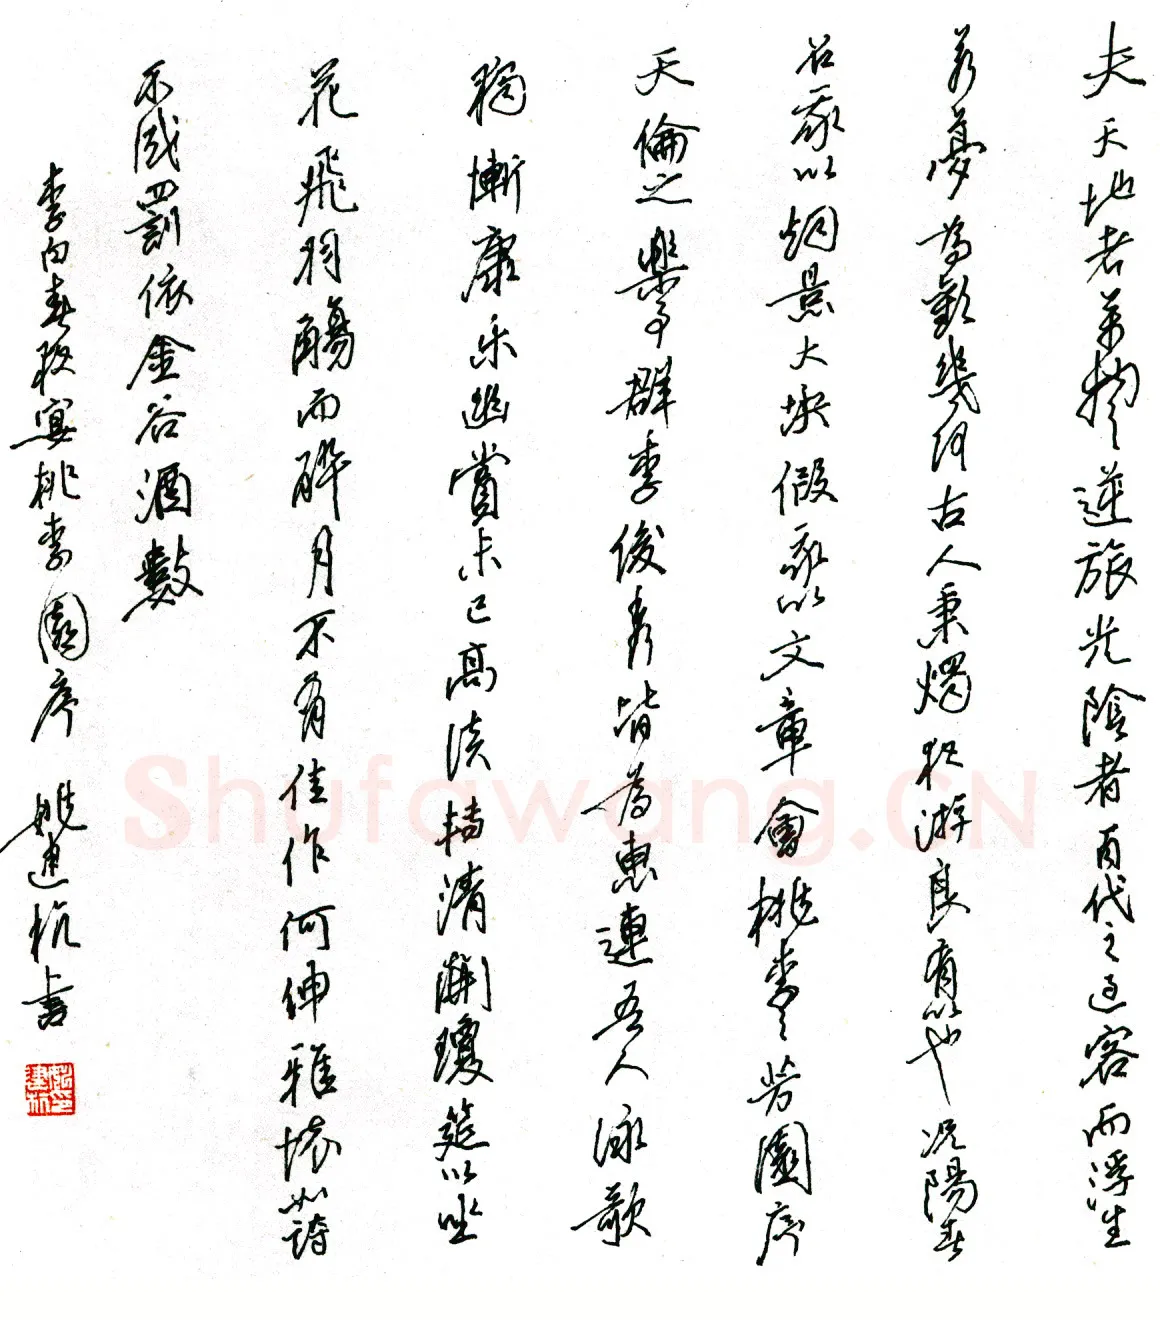 夫天地者萬物之逆旅光陰者百代之過客而浮生
若夢爲歡幾何古人秉燭夜游良有以也況陽春
召我以烟景大塊假我以文章會桃李之芳園序
天倫之樂事群季俊秀皆爲惠連吾人詠歌
獨慚康樂幽賞未已高談轉清開瓊筵以坐
花飛羽觴而醉月不有佳作何伸雅懷如詩
不成罰依金谷酒數
李白春夜宴桃李園序 姚建杭書
Shufawang.CN